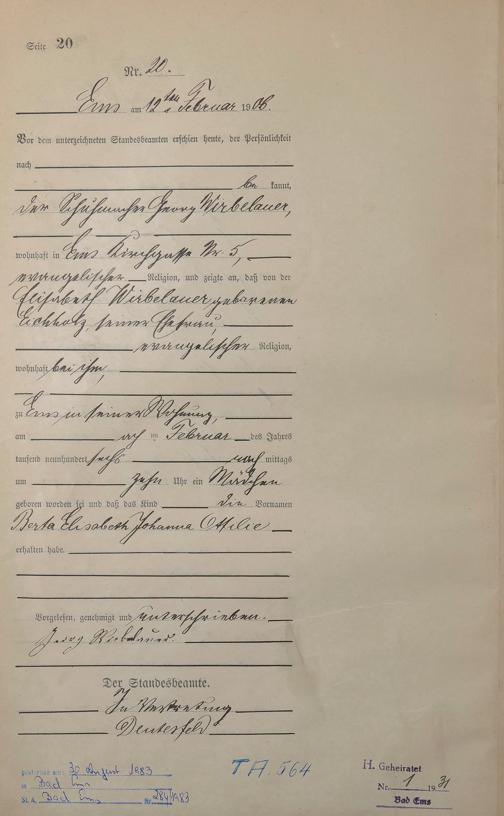 Seite 20
Nr. 20.
Ems am 12ten Februar 1906.
Vor dem unterzeichneten Standesbeamten erschien heute, der Persönlichkeit
nach
be kannt,
der Schuhmacher Georg Wirbelauer,
wohnhaft in Ems Kirchgasse Nr. 5,
evangelischer Religion, und zeigte an, daß von der
Elisabeth Wirbelauer geborenen
Eichholz, seiner Ehefrau,
evangelischer Religion,
wohnhaft bei ihm,
zu Ems in seiner Wohnung,
am ach ten Februar des Jahres
tausend neunhundert sechs nach mittags
um zehn Uhr ein Mädchen
geboren worden sei und daß das Kind die Vornamen
Berta Elisabeth Johanna Ottilie
erhalten habe.
Vorgelesen, genehmigt und unterschrieben.
Georg Wirbelauer.
Der Standesbeamte.
In Vertretung
30. August 1983
in Bad Ems
St. A. Bad Ems Nr. 284/1983
TA. 564
H. Geheiratet
Nr. 1 1931
Bad Ems